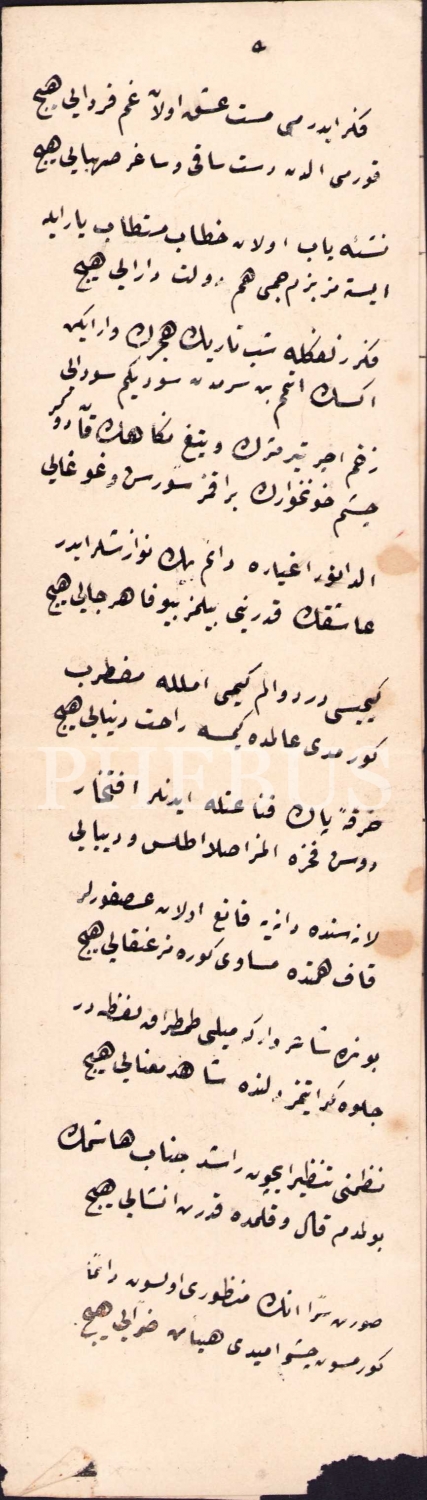 ٥
فكر ايدرمى مست عشق اولان غم فردايى هيچ
قورمى الدن دست ساقى وساغر صهبايى هيچ
نشئه ياب اولان خطاب مستطاب يار ايله
ايستمز بزم جمى هم دولت دارايى هيچ
فكر زلفكله شب تاريك هجرك وار ايكن
اكسك اتمم بن سرمدن سوديكم سودايى
زخم اچر تير مژك وتيغ نكاهك
چشم خونخوارك براقمز شورش وغوغايى
الدانور اغياره دائم پك نوازشلر ايدر
عاشقك قدرينى بيلمز بيوفا هرجايى هيچ
كيميسى درد والم كيمى امللە مضطرب
كورمدى عالمده كيمسه راحت دنيايى هيچ
خرقهٔ پاك قناعتله ايدنلر افتخار
دوش فخره المز اصلا اطلس وديبايى
لانه سنده دانه يه قانع اولان عصفورلر
قاف همتده مساوى كورمز عنقايى هيچ
بونجه شاعر واركه ميلى طمطراق لفظه در
جلوه كر ايتمز دلنده شاهد معنايى هيچ
نظمنى تنظير ايچون راشد جناب هاشمك
بولدم قال وقلمده قدرت انشايى هيچ
صورت سرا انك منظورى اولسون دائما
كورمسون چشم اميدى هيأت
PHEBUS